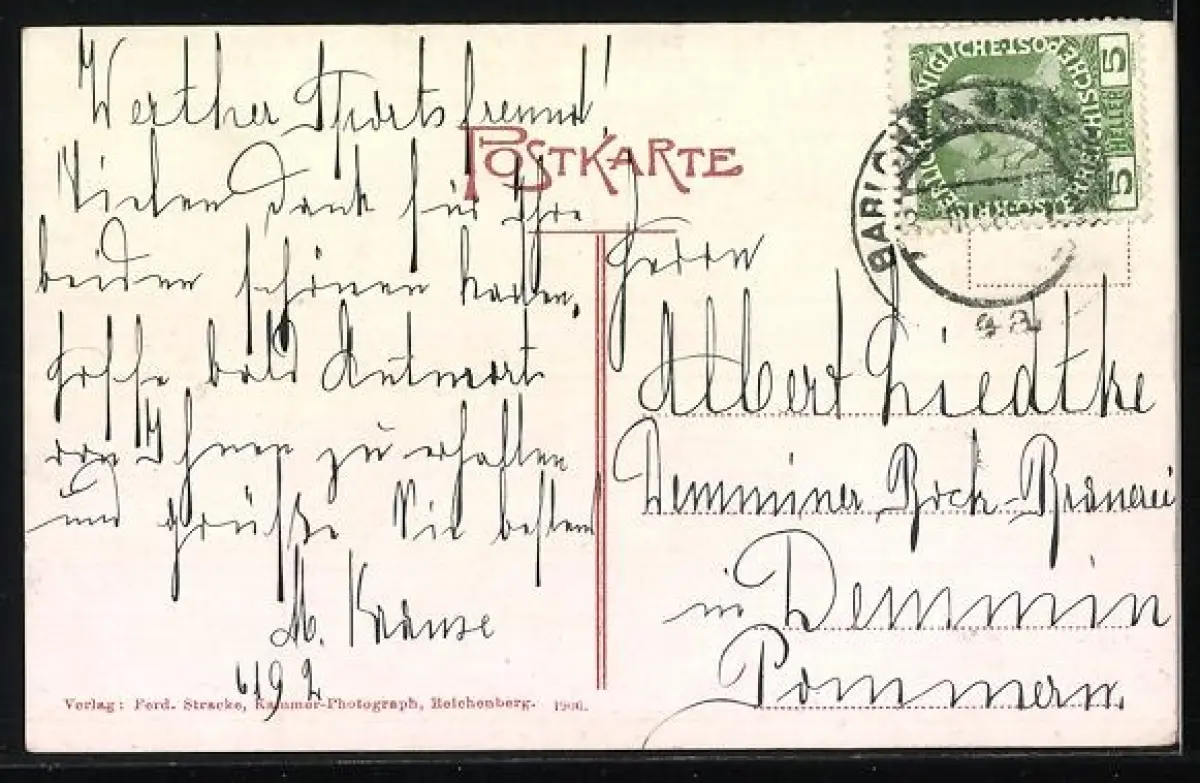 Werther Sportsfreund!
Vielen Dank für Ihre
beiden schönen Karten.
Hoffe bald Antwort
von Ihnen zu erhalten
und grüsse Sie bestens
M. Krause
6192
Verlag: Ferd. Stracke, Kammer-Photograph, Reichenberg. 1906.
POSTKARTE
5 HELLER 5
Herrn
Albert Liedtke
Demminer Bock-Brauerei
in Demmin
Pommern.